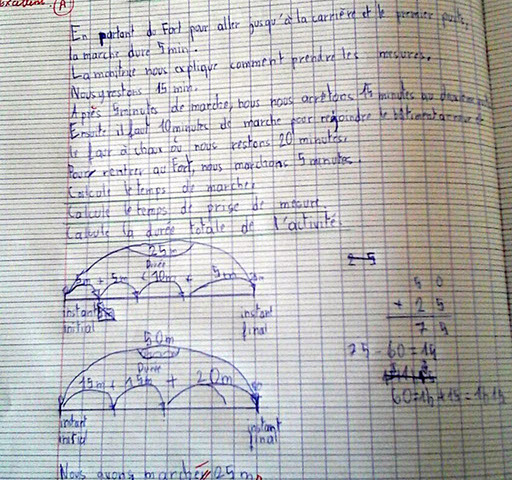 (A)
En partant du Fort pour aller jusqu'à la carrière et le premier puits,
la marche dure 5 min.
La monitrice nous explique comment prendre les mesures.
Nous y restons 15 min.
Après 5 minutes de marche, nous nous arrêtons 15 minutes au
Ensuite il faut 10 minutes de marche pour rejoindre le bâtiment
le four à chaux où nous restons 20 minutes.
Pour rentrer au Fort, nous marchons 5 minutes.
Calcule le temps de marche,
Calcule le temps de prise de mesure.
Calcule la durée totale de l'activité
25m
Durée
5m + 5m + 10m + 5m
instant initial
instant final
50m
Durée
15m + 15m + 20m
instant initial
instant final
25
50
+ 25
75
75 - 60 = 15
60=1h+15=1h15
Nous avons marché 25 m